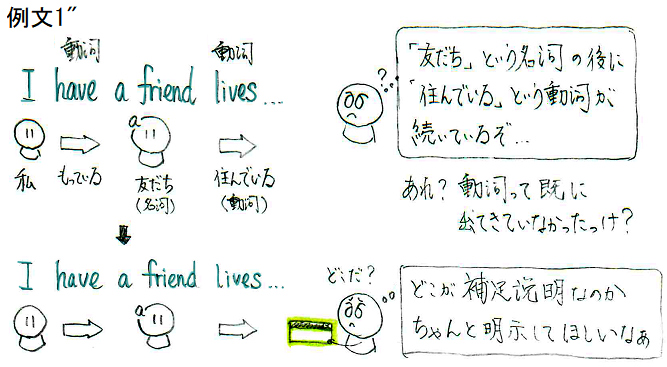 例文1"
動詞 動詞
I have a friend lives...
a
私 もっている 友だち 住んでいる
(名詞) (動詞)
?...
「友だち」という名詞の後に
「住んでいる」という動詞が
続いているぞ...
あれ? 動詞って既に
出てきていなかったっけ?
I have a friend lives...
a
どこだ?
どこが補足説明なのか
ちゃんと明示してほしいなぁ